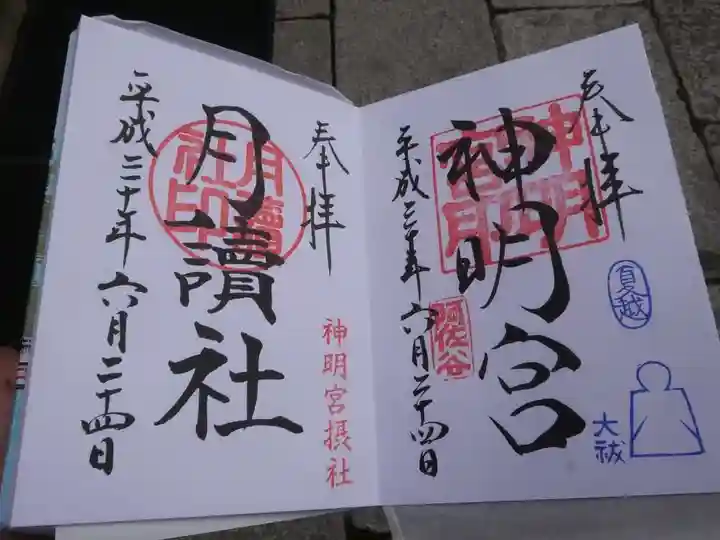 奉拝
神明宮
神明宮印
阿佐谷
平成三十年六月二十四日
夏越
大祓
奉拝
月讀社
月讀社印
平成三十年六月二十四日
神明宮摂社